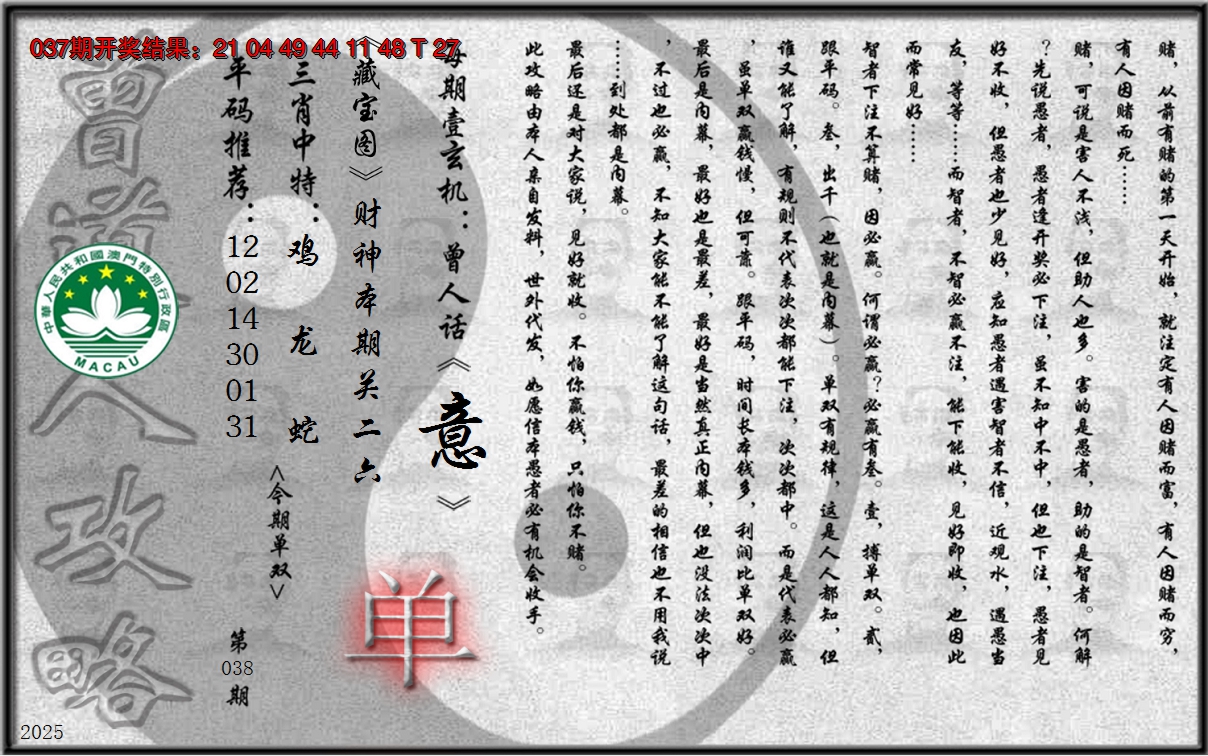 037期开奖结果：21 04 49 44 11 48 T 27
赌，从前有赌的第一天开始，就注定有人因赌而富，有人因赌而穷，
有人因赌而死……
赌，可说是害人不浅，但助人也多。害的是愚者，助的是智者。何解
？先说愚者，愚者逢开奖必下注，虽不知中不中，但也下注，愚者见
好不收，但愚者也少见好，应知愚者遇害智者不信，近观水，遇愚当
友，等等……而智者，不智必赢不注，能下能收，见好即收，也因此
而常见好……
智者下注不算赌，因必赢。何谓必赢？必赢有叁。壹，搏单双。贰，
跟平码。叁，出千（也就是内幕）。单双有规律，这是人人都知，但
谁又能了解，有规则不代表次次都能下注，次次都中。而是代表必赢
，虽单双赢钱慢，但可靠。跟平码，时间长本钱多，利润比单双好。
最后是内幕，最好也是最差，最好是当然真正内幕，但也没法次次中
，不过也必赢，不知大家能不能了解这句话，最差的相信也不用我说
……到处都是内幕。
最后还是对大家说，见好就收。不怕你赢钱，只怕你不赌。
此攻略由本人亲自发料，世外代发，如愿信本愚者必有机会收手。
每期壹玄机：曾人话《意》
《藏宝图》财神本期关二六
单
三肖中特：鸡 龙 蛇
<今期单双>
平码推荐：12 02 14 30 01 31
第038期
曾道人攻略
中華人民共和國澳門特別行政區
MACAU
2025